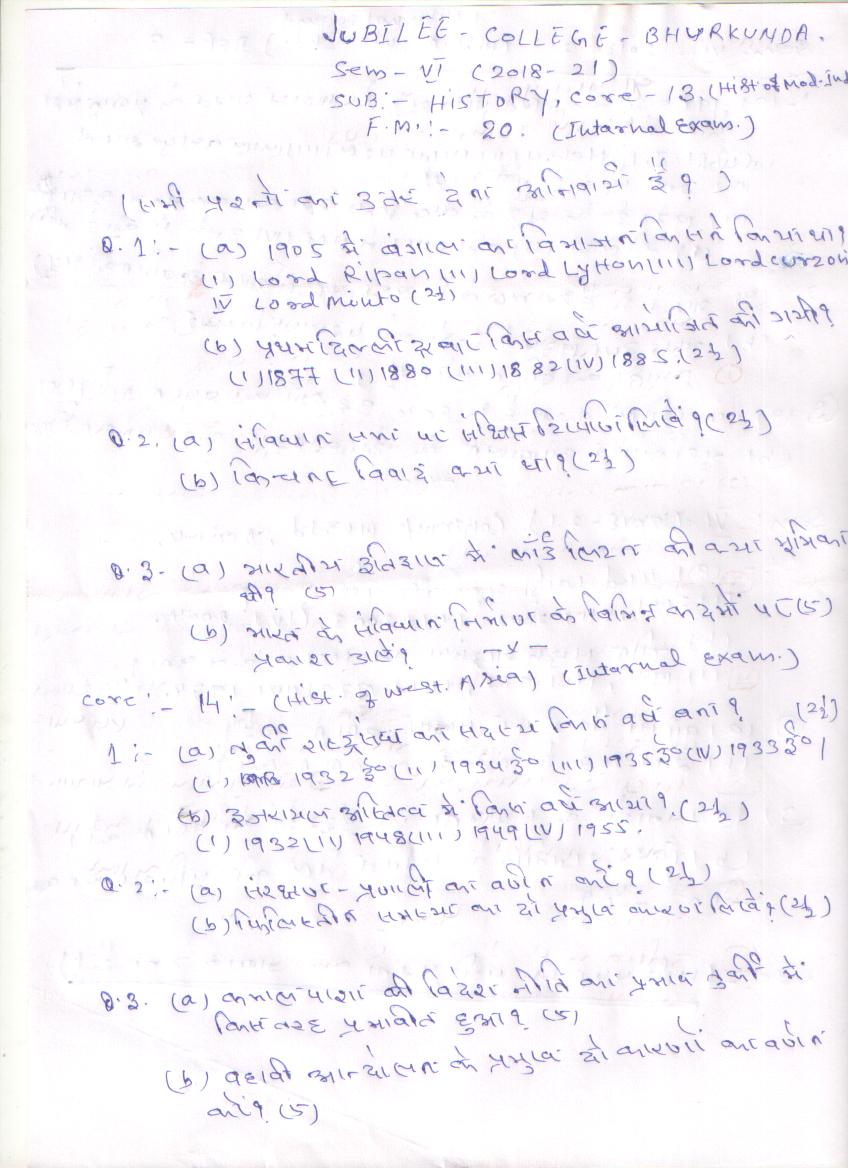 JUBILEE - COLLEGE - BHURKUNDA.
Sem - VI (2018-21)
SUB:- HISTORY, Core - 13, (Hist of Mod. Ind
F.M.:- 20. (Intarnal Exam.)
(सभी प्रश्नों का उत्तर देना अनिवार्य है? )
Q.1:- (a) 1905 में बंगाल का विभाजन किसने किया था?
(i) Lord Ripan (ii) Lord Lytton (iii) Lord curzon
IV Lord Minto (2½)
(b) प्रथम दिल्ली दरबार किस वर्ष आयोजित की गयी?
(i) 1877 (ii) 1880 (iii) 1882 (iv) 1885. (2½)
Q.2. (a) संविधान सभा पर संक्षिप्त टिप्पणि लिखें? (2½)
(b) विवाद क्या था? (2½)
Q.3- (a) भारतीय इतिहास में लार्ड लिटन की क्या भूमिका
थी? (5)
(b) भारत के संविधान निर्माण के विभिन्न कदमों पर (5)
प्रकाश डालें? -x-
Core :- 14:- (Hist. of West. Asia) (Intarnal Exam.)
1:- (a) तुर्की राष्ट्रसंघ का सदस्य किस वर्ष बना? (2½)
(i) 1932 ई० (ii) 1934 ई० (iii) 1935 ई० (iv) 1933 ई० |
(b) इजरायल अस्तित्व में किस वर्ष आया? (2½)
(i) 1932 (ii) 1948 (iii) 1949 (iv) 1955.
Q.2:- (a) संरक्षण - प्रणाली का वर्णन करें? (2½)
(b) फिलिस्तीन समस्या का दो प्रमुख कारण लिखें? (2½)
Q.3. (a) कमाल पाशा की विदेश नीति का प्रभाव तुर्की में
किस तरह प्रभावित हुआ? (5)
(b) वहावी आन्दोलन के प्रमुख दो कारणों का वर्णन
करें? (5)